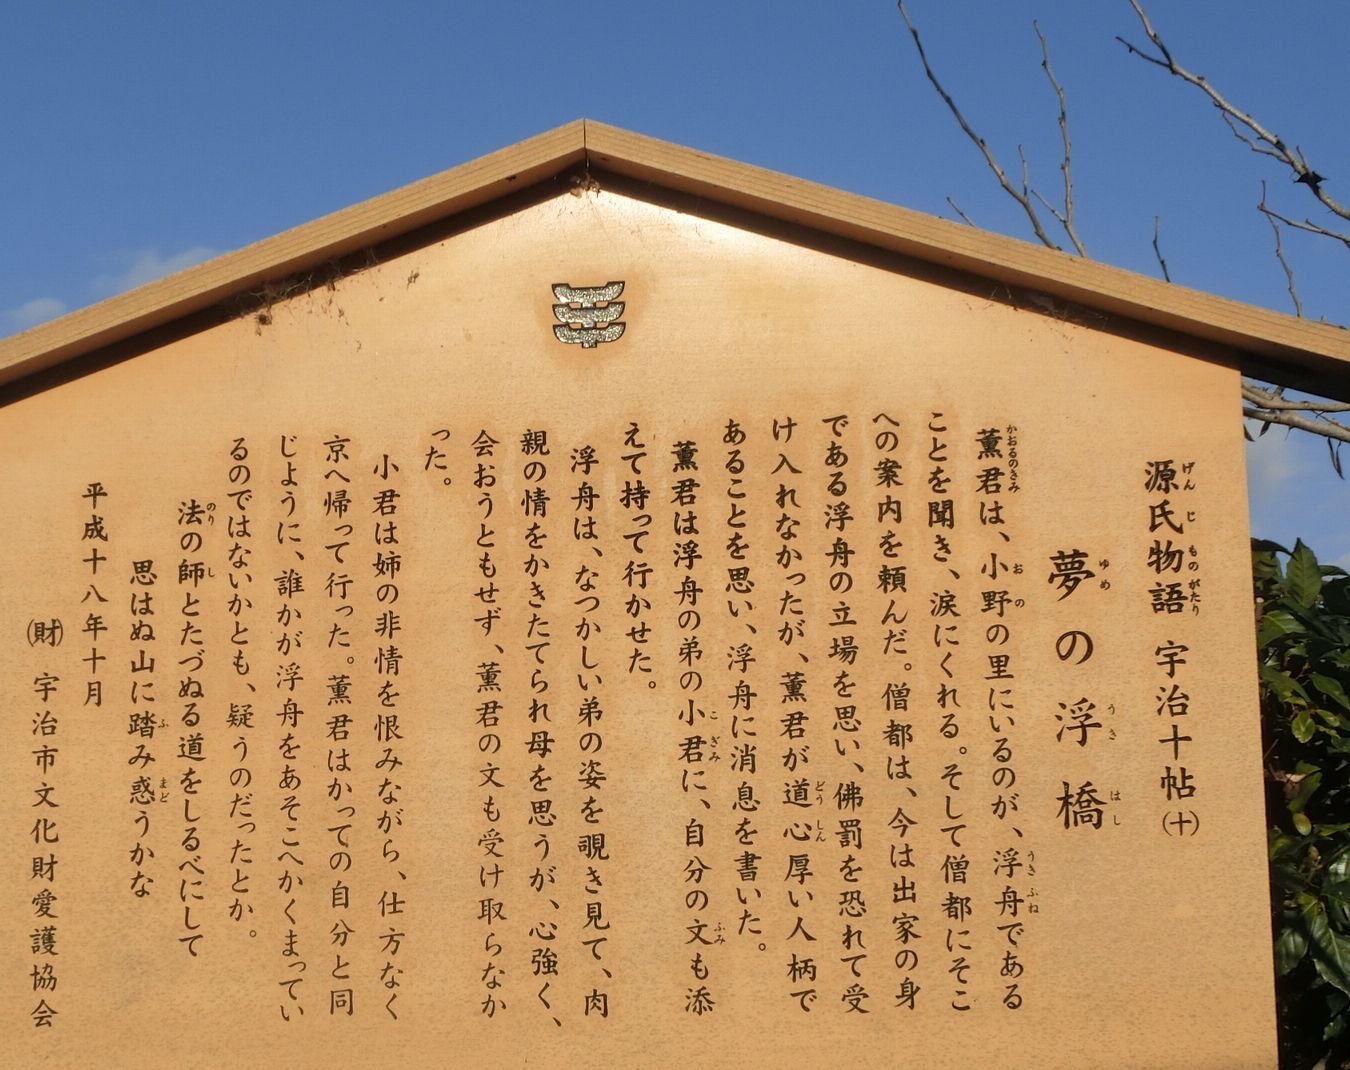 源氏物語 宇治十帖(十)
夢の浮橋
薫君は、小野の里にいるのが、浮舟である
ことを聞き、涙にくれる。そして僧都にそこ
への案内を頼んだ。僧都は、今は出家の身
である浮舟の立場を思い、佛罰を恐れて受
け入れなかったが、薫君が道心厚い人柄で
あることを思い、浮舟に消息を書いた。
薫君は浮舟の弟の小君に、自分の文も添
えて持って行かせた。
浮舟は、なつかしい弟の姿を覗き見て、肉
親の情をかきたてられ母を思うが、心強く、
会おうともせず、薫君の文も受け取らなか
った。
小君は姉の非情を恨みながら、仕方なく
京へ帰って行った。薫君はかっての自分と同
じように、誰かが浮舟をあそこへかくまってい
るのではないかとも、疑うのだったとか。
法の師とたづぬる道をしるべにして
思はぬ山に踏み惑うかな
平成十八年十月
(財)宇治市文化財愛護協会